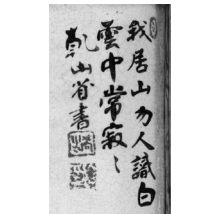 我居山勿人識白
雲中常寂〻
乾山省書